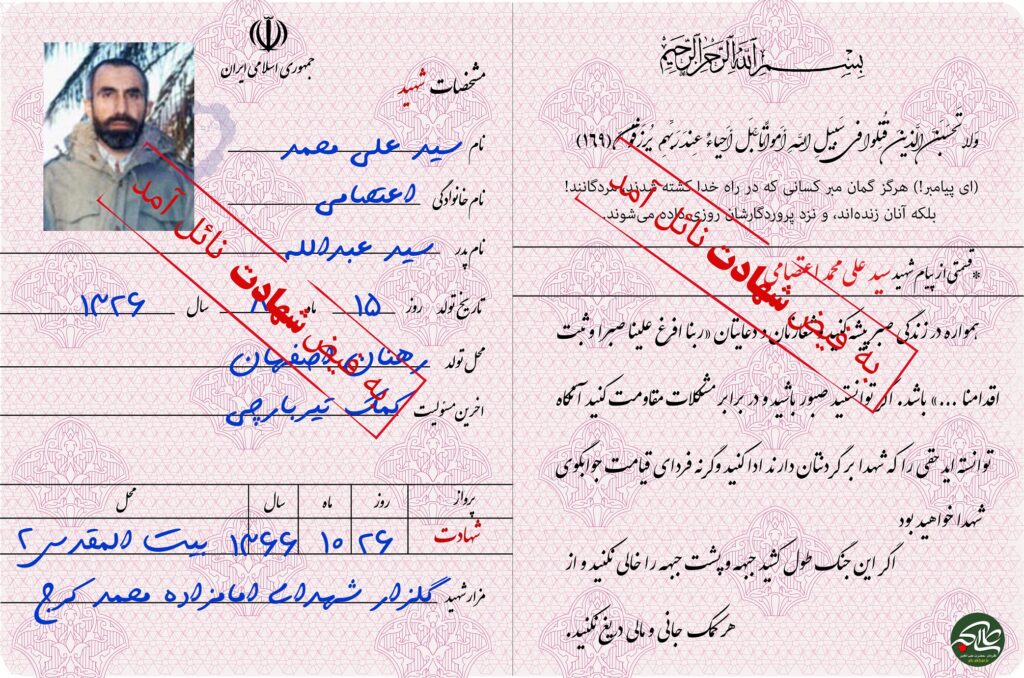 جمهوری اسلامی ایران
مشخصات شهید
نام سید علی محمد
نام خانوادگی اعتصامی
نام پدر سید عبدالله
تاریخ تولد روز ۱۵ ماه سال ۱۳۲۶
محل تولد رهنان اصفهان
اخرین مسئولیت کمک تیربارچی
به فیض شهادت نائل آمد
پرواز روز ماه سال محل
شهادت ۲۶ ۱۰ ۱۳۶۶ بیت المقدس ۲
مزار شهید گلزار شهدای امامزاده محمد کرج
بسم الله الرحمن الرحیم
وَلا تَحْسَبَنَّ الَّذینَ قُتِلوا فی سَبیلِ اللهِ أمواتًا بَل أحیاءٌ عِندَ رَبِّهِم یُرزَقونَ (۱۶۹)
(ای پیامبر!) هرگز گمان مبر کسانی که در راه خدا کشته شدند، مردگانند!
بلکه آنان زنده‌اند، و نزد پروردگارشان روزی داده می‌شوند.
*قسمتی از پیام شهید سید علی محمد اعتصامی
همواره در زندگی صبر پیشه کنید و شعارتان و دعایتان «ربنا افرغ علینا صبرا و ثبت
اقدامنا ...» باشد. اگر توانستید صبور باشید و در برابر مشکلات مقاومت کنید آنگاه
توانسته اید حقی را که شهدا بر گردنتان دارند ادا کنید وگرنه فردای قیامت جوابگوی
شهدا خواهید بود
اگر این جنگ طول کشید جبهه و پشت جبهه را خالی نکنید و از
هر کمک جانی و مالی دریغ نکنید.
به فیض شهادت نائل آمد